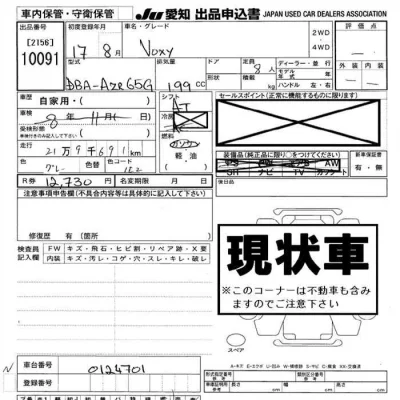 車内保管・守衛保管
JU 愛知 出品申込書 JAPAN USED CAR DEALERS ASSOCIATION
出品番号
[2156]
10091
初度登録年月
車名・グレード
17 年 8 月
Voxy
2WD
4WD
評価点
外装
内装
型式
排気量
ドア
定員
ディーラー・並行
DBA-AZR65G
199 cc
8 人
積載
モデル年式
kg
ハンドル 左・右
車歴
自家用・
シフト
AT
セールスポイント(正常に機能するものに限ります)
車検
8 年 11 月( 日)
冷房
受検形態
燃料
ガソリン
軽油
走行
21 万 9 千 691 km
装備品(純正品に限り○をつけてください)
SR ナビ TV カワシート
AW
新車保証書
有・無
色
色替
色コード
グレー
R券
12,730 円
名変期限
月 日
後日品
注意事項申告欄(不具合内容等は具体的に記入して下さい)
修復歴 有(箇所 )
検査員記入欄
FW キズ・飛石・ヒビ割・リペア跡・X要
内装 キズ・汚レ・コゲ・穴・スレ・キレ・破レ
現状車
※このコーナーは不動車も含みますのでご注意下さい
スペア
車台番号
0124701
登録番号